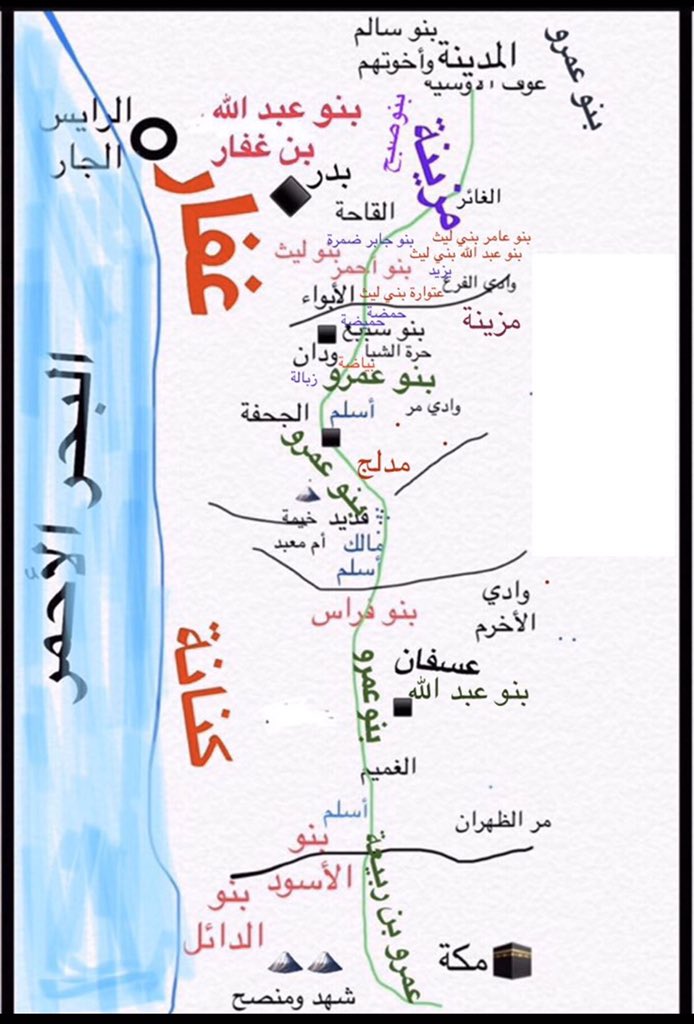 بنو سالم
وأخوتهم
المدينة
عوف الأوسية
بنو عمرو
الرايس
الجار
بنو عبد الله
بن غفار
بنو صبح
مزينة
غفار
بدر
الغائر
القاحة
بنو عامر بني ليث
بنو جابر ضمرة
بنو ليث
بنو عبد الله بني ليث
بنو احمر
يزيد
وادي الفرع
عتوارة بني ليث
الأبواء
حمضة
حميضة
مزينة
بنو سبيع
حرة الشبا
ودان
بياضة
زبالة
بنو عمرو
وادي مر
أسلم
الجحفة
بنو عمرو
مدلج
البحر الأحمر
قديد
خيمة
أم معبد
مالك
أسلم
وادي
الأخرم
بنو فراس
كنانة
بنو عمرو
عسفان
بنو عبد الله
الغميم
أسلم
مر الظهران
بنو
الأسود
بنو
الدائل
عمرو بن ربيعة
مكة
شهد ومنصح